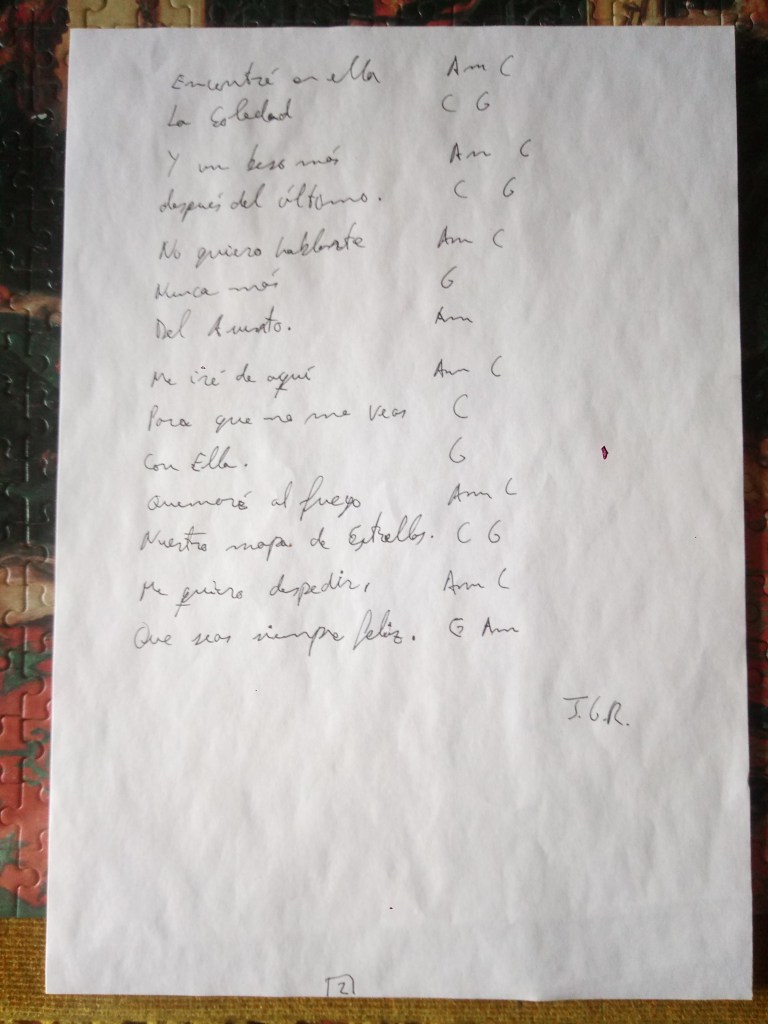 Encontré en ella Am C
La Soledad C G
Y un beso más Am C
después del último. C G
No quiero hablarte Am C
Nunca más G
Del Asunto. Am
Me iré de aquí Am C
Para que no me veas C
Con Ella. G
Quemaré al fuego Am C
Nuestro mapa de Estrellas. C G
Me quiero despedir, Am C
Que seas siempre feliz. G Am
J.G.R.
2